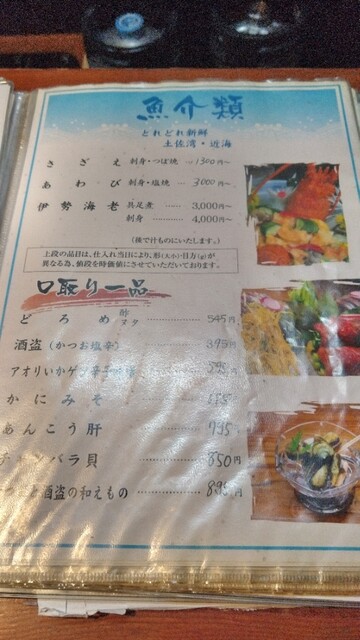 魚介類
とれとれ新鮮
土佐湾・近海
さざえ 刺身・つぼ焼 〜1300円〜
あわび 刺身・塩焼 〜3000円〜
伊勢海老 具足煮 …… 3,000円〜
刺身 …… 4,000円〜
(後で汁ものにいたします。)
上段の品目は、仕入れ当日により、形(大小)・目方(g)が
異なる為、値段を時価値にさせていただいております。
口取り一品
どろめ 酢 ヌタ …… 545円
酒盗(かつお塩辛) …… 395円
アオリいかゲソ
かにみそ
あんこう肝 …… 795円
チャンバラ貝 …… 850円
酒盗の和えもの …… 895円